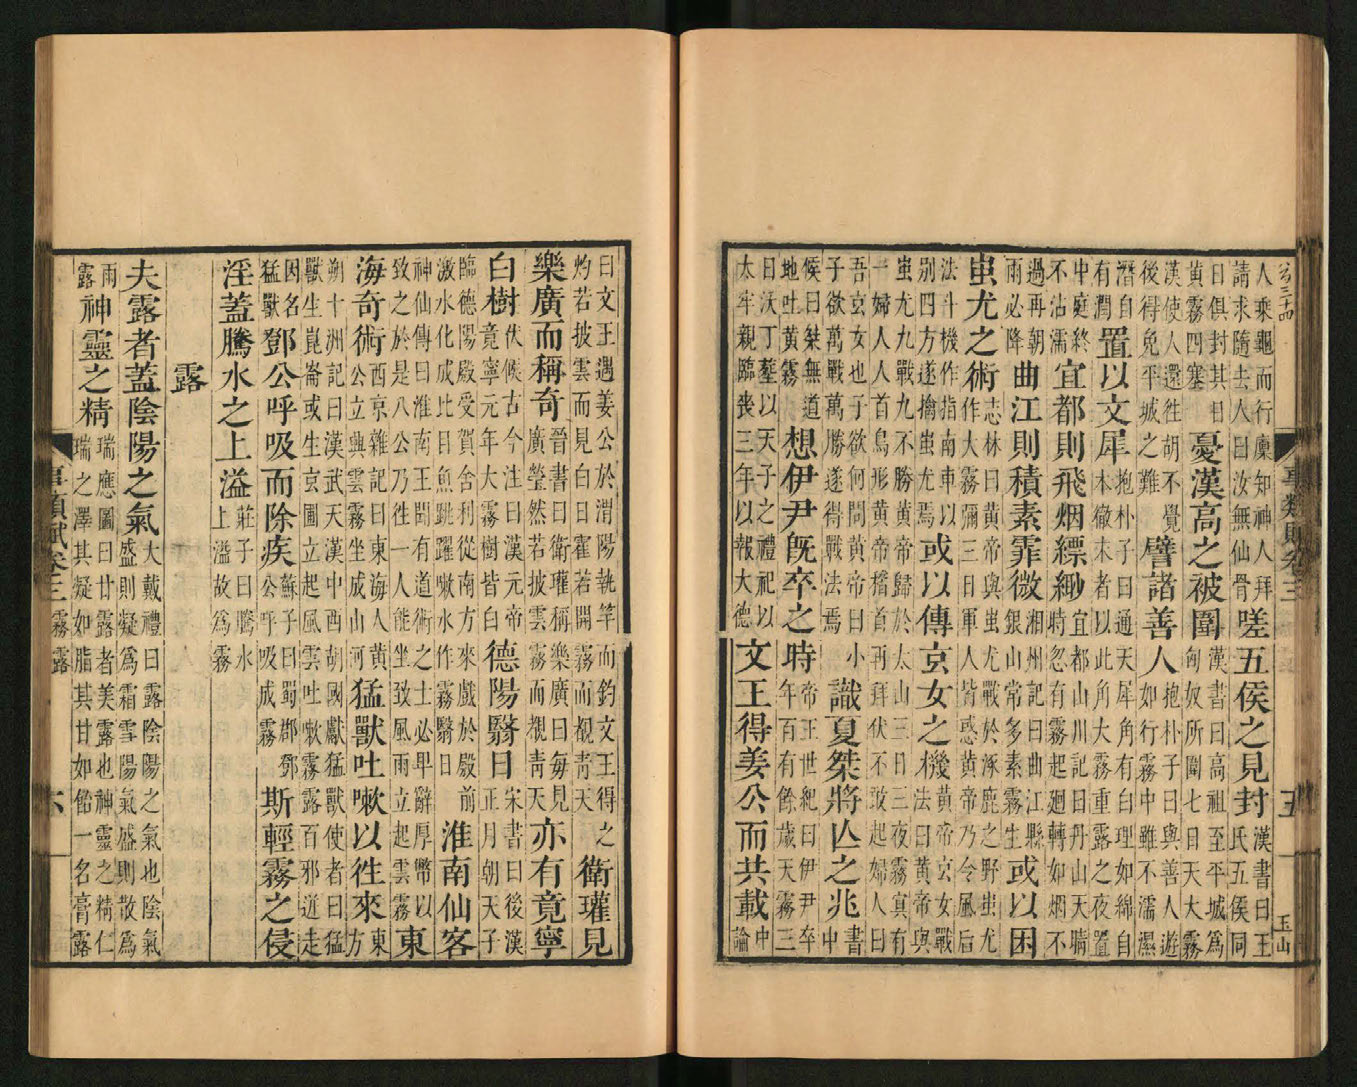 人乘龜而行麋知神人拜請求隨去人曰汝無仙骨嗟五侯之見封漢書曰王氏五侯同
日俱封其日黄霧四塞憂漢高之被圍漢書曰高祖至平城為匈奴所圍七日天大霧
漢使人還徃胡不覺後得免平城之難譬諸善人抱朴子曰與善人遊如行霧中雖不濡濕
潛自有潤置以文犀抱朴子曰通天犀角有白理如綿自本徹末者以此角大霧重露之夜置
中庭終不沾濡宜都則飛烟縹緲宜都山川記曰丹山天晴時忽有霧起廻轉如烟不
過再朝雨必降曲江則積素霏微湘州記曰曲江縣銀山常多素霧生或以困
蚩尤之術志林曰黄帝與蚩尤戰於涿鹿之野蚩尤作大霧彌三日軍人皆惑黄帝乃令風后
法斗機作指南車以別四方遂擒蚩尤焉或以傳京女之機黄帝京女戰法曰黄帝與
蚩尤九戰九不勝黄帝歸於太山三日三夜霧冥有一婦人人首鳥形黄帝稽首再拜伏不敢起婦人曰
吾京女也子欲何問黄帝曰小子欲萬戰萬勝遂得戰法焉識夏桀將亾之兆書中
候曰桀無道地吐黄霧想伊尹旣卒之時帝王世紀曰伊尹卒年百有餘歲天霧三
日沃丁塟以天子之禮祀以太牢親臨喪三年以報大德文王得姜公而共載中論
曰文王遇姜公於渭陽執竿而釣文王得之灼若披雲而見白日霍若開霧而覩靑天衛瓘見
樂廣而稱奇晉書曰衛瓘稱樂廣曰每見廣瑩然若披雲霧而覩靑天亦有竟寧
白樹伏候古今注曰漢元帝竟寧元年大霧樹皆白德陽翳日宋書曰後漢正月朝天子
臨德陽殿受賀舍利從南方來戲於殿前激水化成比目魚跳躍嗽水作霧翳日淮南仙客
神仙傳曰淮南王聞有道術之士必卑辭厚幣以致之於是八公乃徃一人能坐致風雨立起雲霧東
海奇術西京雜記曰東海人黄公立興雲霧坐成山河猛獸吐嗽以徃來東方
朔十洲記曰漢武天漢中西胡國獻猛獸使者曰猛獸生崑崙或生京圃立起風雲吐嗽霧露百邪迸走
因名猛獸鄧公呼吸而除疾蘇子曰蜀郡鄧公呼吸成霧斯輕霧之侵
淫蓋騰水之上溢莊子曰騰水上溢故爲霧
露
夫露者蓋陰陽之氣大戴禮曰露陰陽之氣也陰氣盛則凝爲霜雪陽氣盛則散爲
雨露神靈之精瑞應圖曰甘露者美露也神靈之精仁瑞之澤其凝如脂其甘如飴一名膏露
事類賦卷三
五
玉山
事類賦卷三
霧
露
六